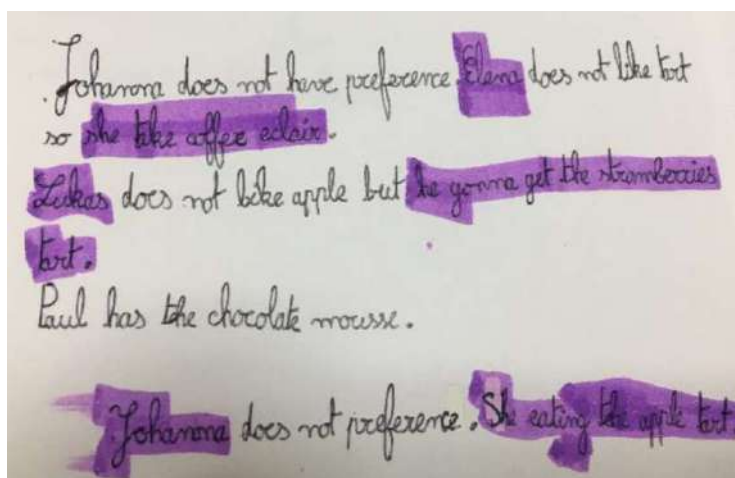 . Johanna does not have preference. Elena does not like tart
so she take coffee eclair.
Lukas does not like apple but he gonna get the stramberries
tart.
Paul has the chocolate mousse.
Johanna does not preference. She eating the apple tart.